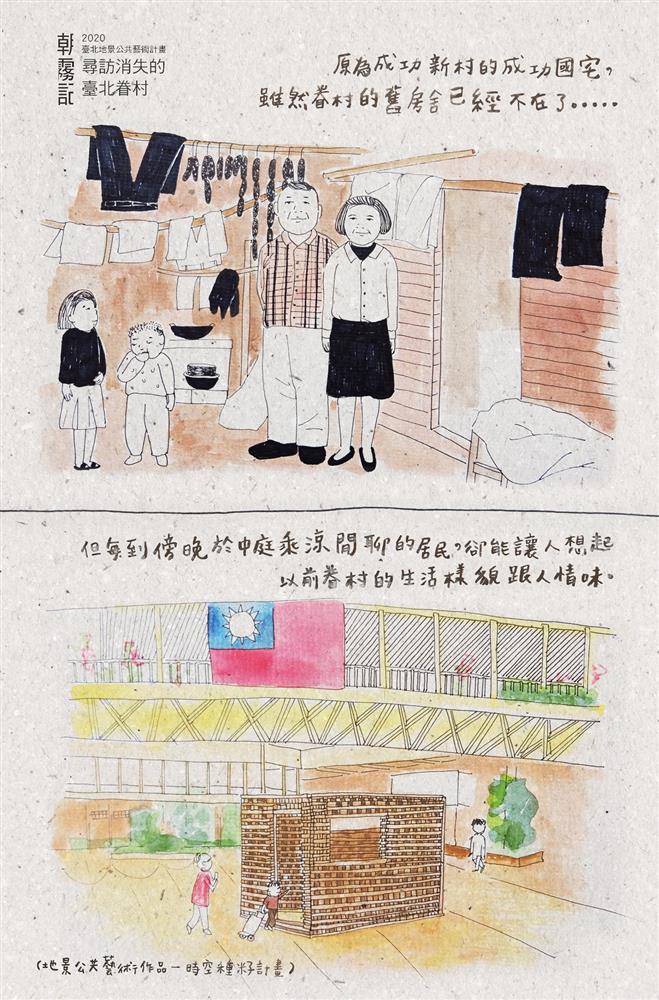 朝霧記
2020
臺北地景公共藝術計畫
尋訪消失的
臺北眷村
原為成功新村的成功國宅，
雖然眷村的舊房舍已經不在了.....
但每到傍晚於中庭乘涼閒聊的居民，卻能讓人想起
以前眷村的生活樣貌跟人情味。
(地景公共藝術作品－時空種籽計畫)